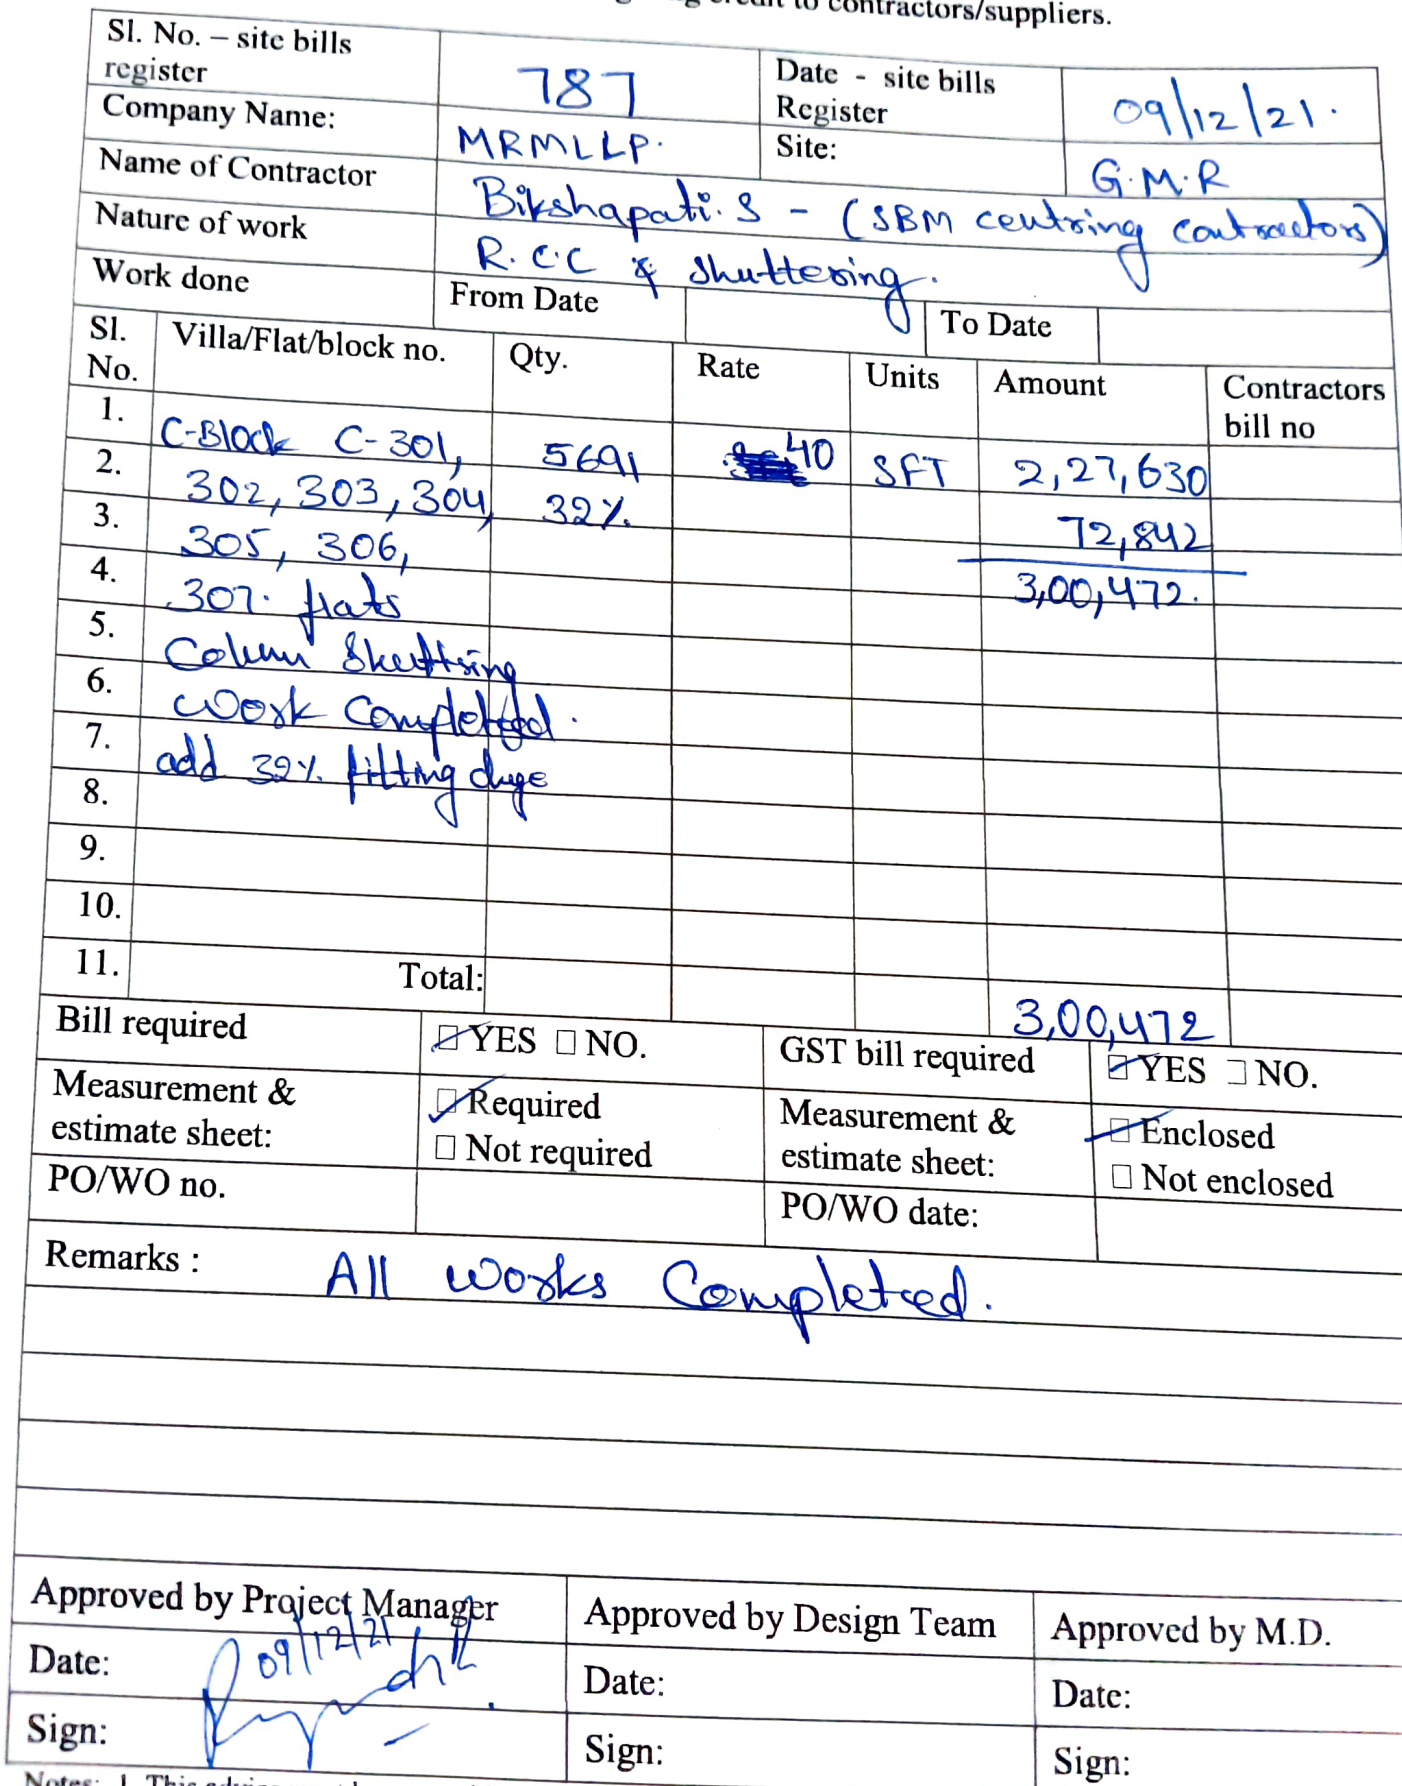 credit to contractors/suppliers.
Sl. No. – site bills register 787 Date - site bills Register 09/12/21.
Company Name: MRMLLP. Site: G.M.R
Name of Contractor Bikshapati.S - (SBM centring contractors)
Nature of work R.C.C & shuttering.
Work done From Date To Date
Sl. No. Villa/Flat/block no. Qty. Rate Units Amount Contractors bill no
1. C-Block C-301, 5691 40 SFT 2,27,630
2. 302, 303, 304, 32% 72,842
3. 305, 306, 3,00,472.
4. 307. flats
5. Column Shuttring
6. work Completed.
7. add 32% fitting
8.
9.
10.
11. Total: 3,00,472
Bill required YES NO. GST bill required YES NO.
Measurement & estimate sheet: Required Not required Measurement & estimate sheet: Enclosed Not enclosed
PO/WO no. PO/WO date:
Remarks : All works Completed.
Approved by Project Manager Approved by Design Team Approved by M.D.
Date: 09/12/21 Date: Date:
Sign: Sign: Sign:
Notes: 1. This